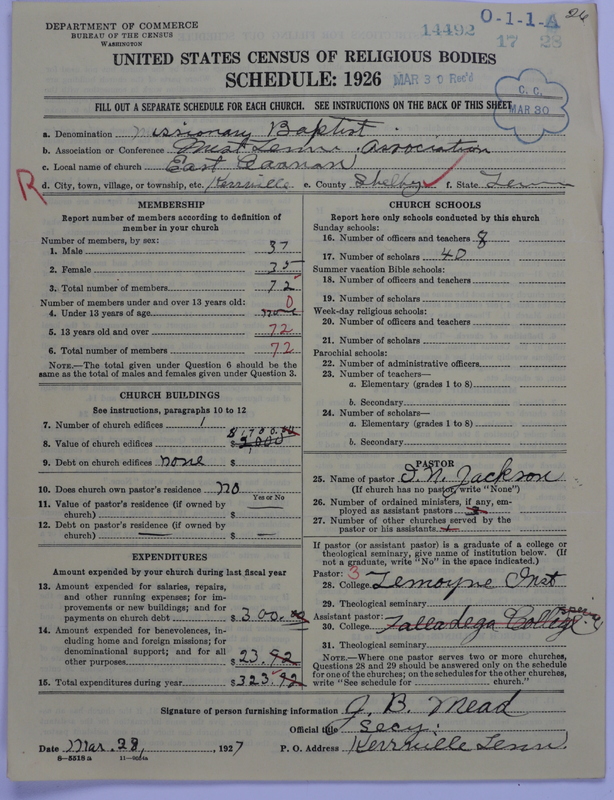 DEPARTMENT OF COMMERCE
BUREAU OF THE CENSUS
WASHINGTON
14492
0-1-1-A
26
17 28
UNITED STATES CENSUS OF RELIGIOUS BODIES
SCHEDULE: 1926
MAR 30 Rec'd
C. C.
MAR 30
FILL OUT A SEPARATE SCHEDULE FOR EACH CHURCH. SEE INSTRUCTIONS ON THE BACK OF THIS SHEET
a. Denomination Missionary Baptist
b. Association or Conference West Tenn. Association
c. Local name of church East Caanan
R
d. City, town, village, or township, etc. Kerrville e. County Shelby f. State Tenn
MEMBERSHIP
Report number of members according to definition of
member in your church
Number of members, by sex:
1. Male 37
2. Female 35
3. Total number of members 72
Number of members under and over 13 years old: 0
4. Under 13 years of age none
5. 13 years old and over 72
6. Total number of members 72
NOTE.—The total given under Question 6 should be
same as the total of males and females given under Question 3.
CHURCH BUILDINGS
See instructions, paragraphs 10 to 12
7. Number of church edifices 1
8. Value of church edifices $2,000
9. Debt on church edifices none $
10. Does church own pastor's residence no
Yes or No
11. Value of pastor's residence (if owned by
church) $
12. Debt on pastor's residence (if owned by
church) — $ —
EXPENDITURES
Amount expended by your church during last fiscal year
13. Amount expended for salaries, repairs,
and other running expenses; for im-
provements or new buildings; and for
payments on church debt $300.00
14. Amount expended for benevolences, in-
cluding home and foreign missions; for
denominational support; and for all
other purposes $23.92
15. Total expenditures during year $323.92
CHURCH SCHOOLS
Report here only schools conducted by this church
Sunday schools:
16. Number of officers and teachers 8
17. Number of scholars 40
Summer vacation Bible schools:
18. Number of officers and teachers
19. Number of scholars
Week-day religious schools:
20. Number of officers and teachers
21. Number of scholars
Parochial schools:
22. Number of administrative officers
23. Number of teachers—
a. Elementary (grades 1 to 8)
b. Secondary
24. Number of scholars—
a. Elementary (grades 1 to 8)
b. Secondary
PASTOR
25. Name of pastor J. N. Jackson
(If church has no pastor, write "None")
26. Number of ordained ministers, if any, em-
ployed as assistant pastors
27. Number of other churches served by the
pastor or his assistants
If pastor (or assistant pastor) is a graduate of a college or
theological seminary, give name of institution below. (If
not a graduate, write "No" in the space indicated.)
Pastor: 3
28. College Lemoyne Inst
29. Theological seminary
Assistant pastor:
30. College Talladega College
31. Theological seminary
NOTE.—Where one pastor serves two or more churches,
Questions 28 and 29 should be answered only on the schedule
for one of the churches; on the schedules for the other churches,
write "See schedule for church."
Signature of person furnishing information J. B. Mead
Official title Secy.
Date Mar. 28, , 1927 P. O. Address Kerrville Tenn.
8—5518 a 11—9084a